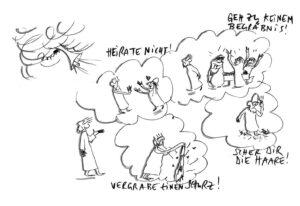 GEH ZU KEINEM
BEGRÄBNIS!
HEIRATE NICHT!
SCHER DIR
DIE HAARE!
VERGRABE EINEN SCHURZ!